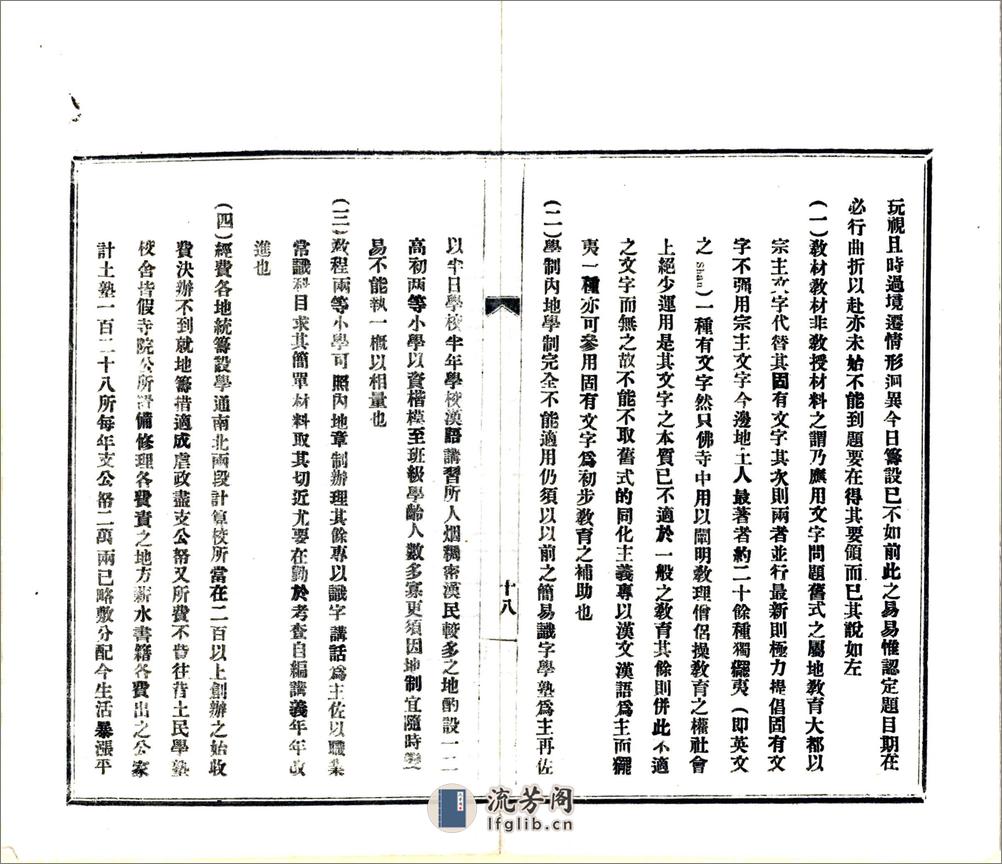 玩視且時過境遷情形洄異今日籌設已不如前此之易易惟認定題目期在
必行曲折以赴亦未始不能到題要在得其要領而已其說如左
(一)教材教材非教授材料之謂乃應用文字問題舊式之屬地教育大都以
宗主文字代替其固有文字其次則兩者並行最新則極力提倡固有文
字不强用宗主文字今邊地土人最著者約二十餘種獨擺夷(即英文
之 Shan)一種有文字然只佛寺中用以闡明教理僧侶操教育之權社會
上絕少運用是其文字之本質已不適於一般之教育其餘則併此不適
之文字而無之故不能不取舊式的同化主義專以漢文漢語爲主而擺
夷一種亦可參用固有文字爲初步教育之補助也
(二)學制內地學制完全不能適用仍須以以前之簡易識字學塾爲主再佐
十八
以半日學校半年學校漢語講習所人烟稠密漢民較多之地酌設一二
高初兩等小學以資楷模至班級學齡人數多寡更須因地制宜隨時變
易不能執一概以相量也
(三)教程兩等小學可照內地章制辦理其餘專以識字講話爲主佐以職業
常識科目求其簡單材料取其切近尤要在勤於考查自編講義年年改
進也
(四)經費各地統籌設學通南北兩段計算校所當在二百以上創辦之始收
費決辦不到就地籌措適成虐政盡支公帑又所費不貲往昔土民學塾
校舍皆假寺院公所設備修理各費責之地方薪水書籍各費出之公家
計土塾一百二十八所每年支公帑二萬兩已略敷分配今生活暴漲平
流芳阁
lfglib.cn